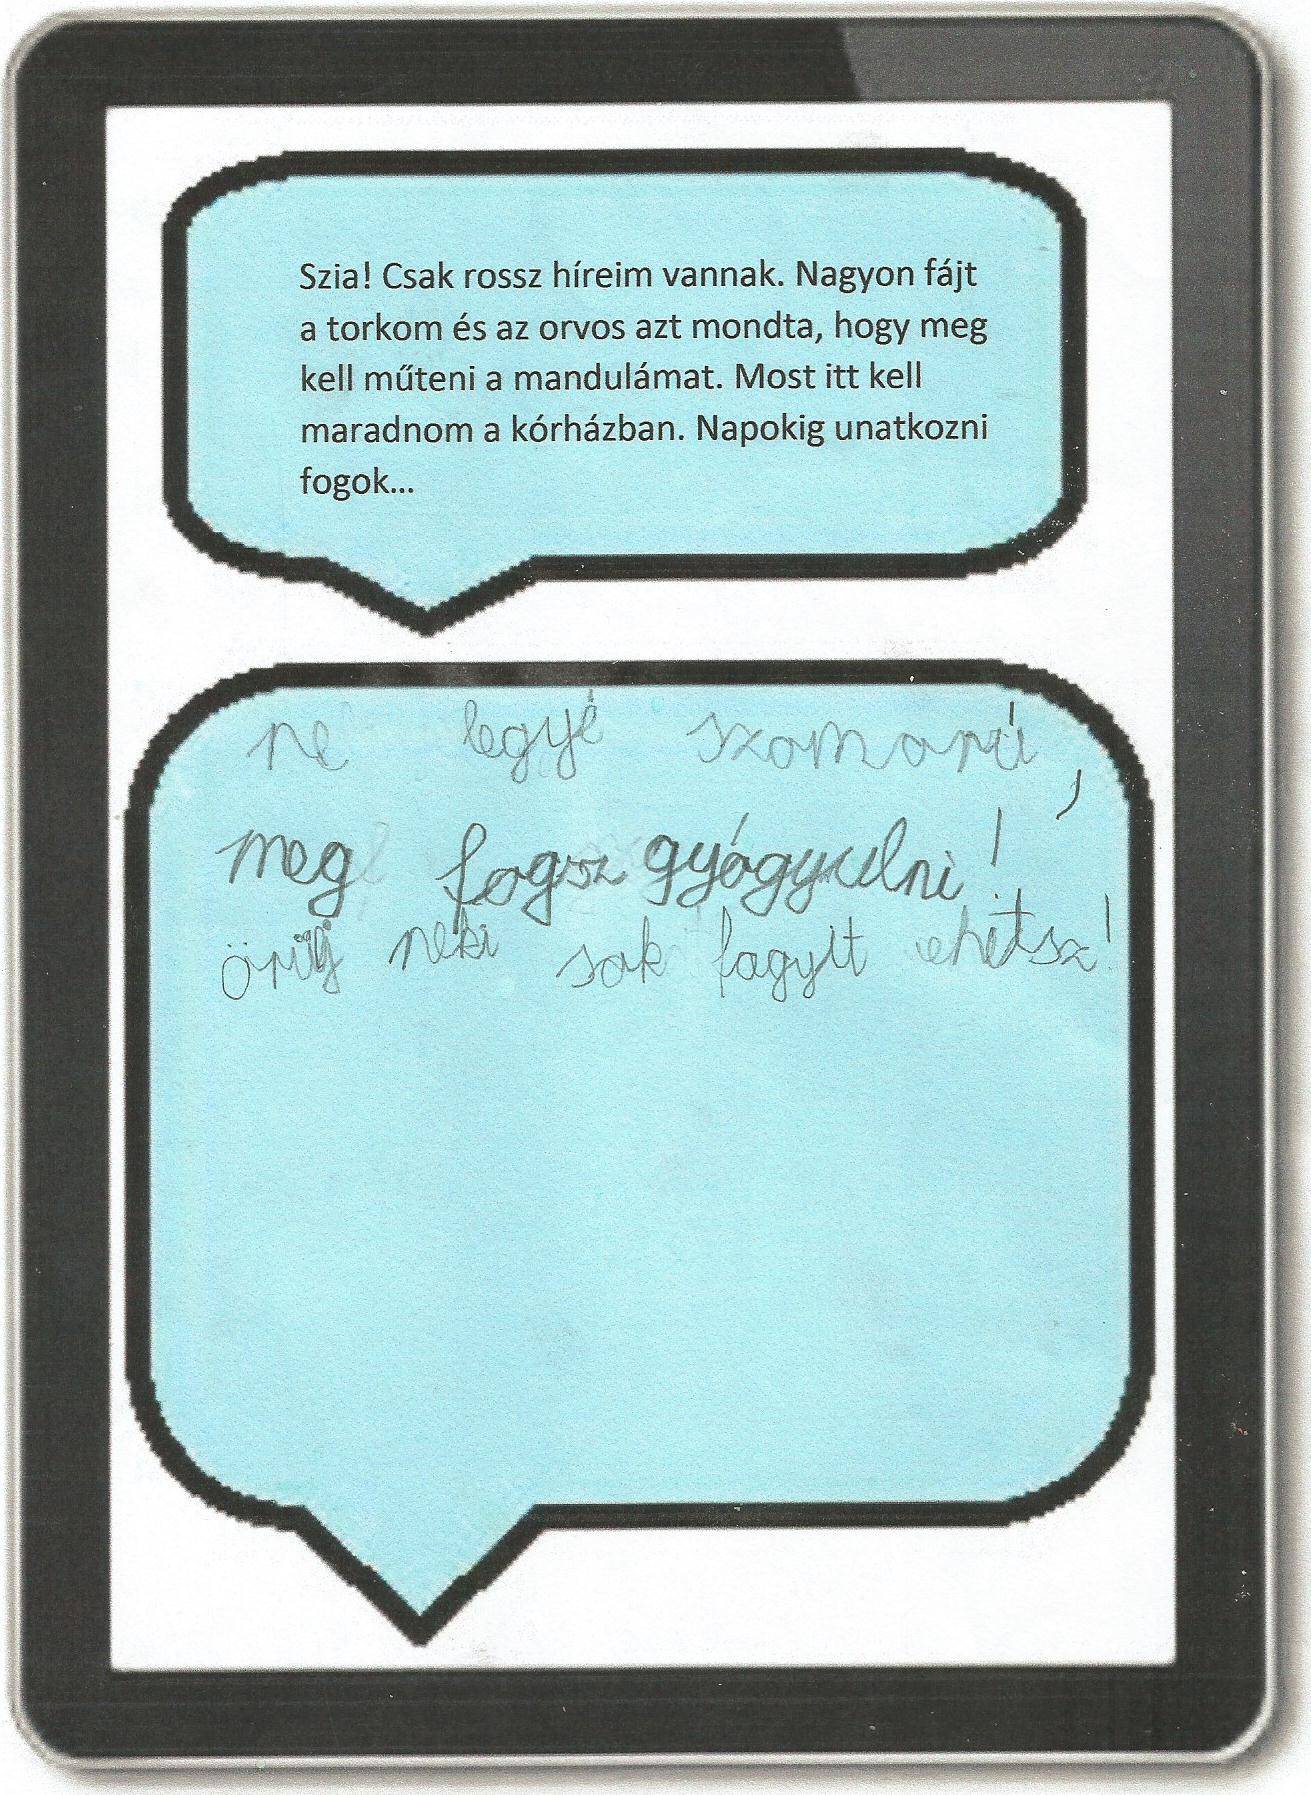 Szia! Csak rossz híreim vannak. Nagyon fájt
a torkom és az orvos azt mondta, hogy meg
kell műteni a mandulámat. Most itt kell
maradnom a kórházban. Napokig unatkozni
fogok...
ne legyé szomorú,
meg fogsz gyógyulni!
örülj neki sok fagyit ehetsz!